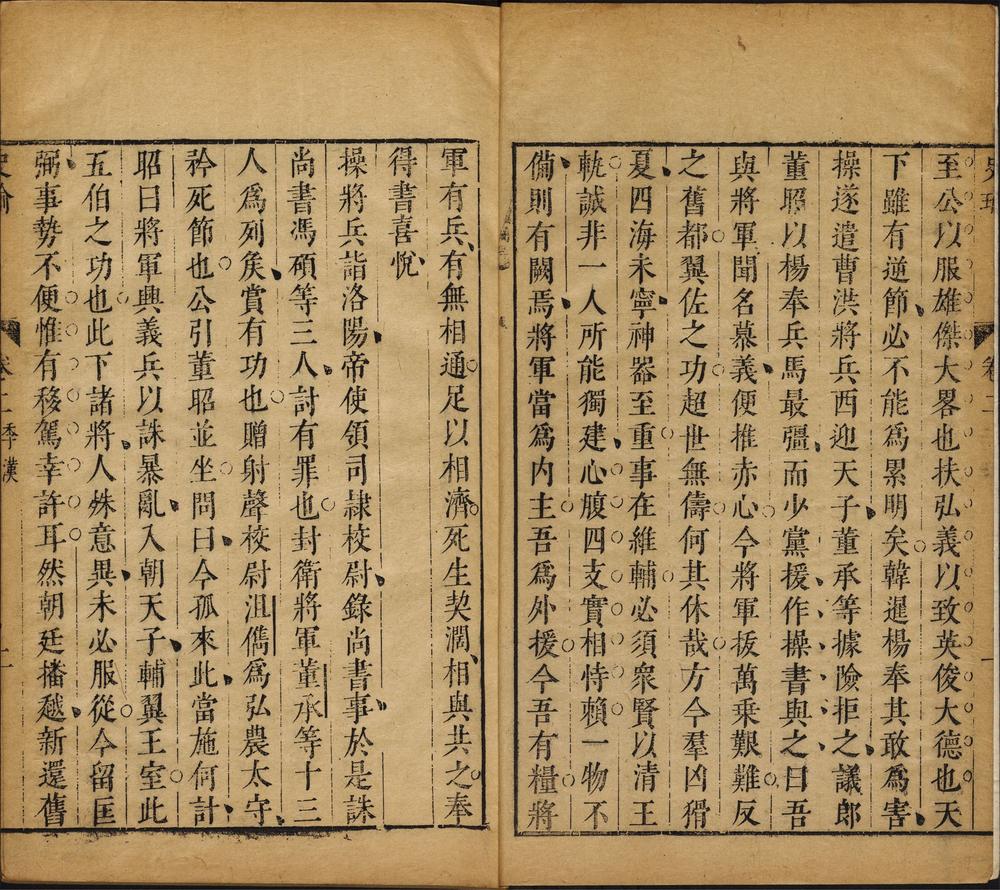 至公以服雄傑大畧也扶弘義以致英俊大德也天
下雖有逆節必不能爲累明矣韓暹楊奉其敢爲害
操遂遣曹洪將兵西迎天子董承等據險拒之議郎
董昭以楊奉兵馬最彊而少黨援作操書與之曰吾
與將軍聞名慕義便推赤心今將軍拔萬乘艱難反
之舊都翼佐之功超世無儔何其休哉方今羣凶猾
夏四海未寧神器至重事在維輔必須衆賢以清王
軌誠非一人所能獨建心腹四支實相恃賴一物不
備則有闕焉將軍當爲内主吾爲外援今吾有糧將
軍有兵有無相通足以相濟死生契濶相與共之奉
得書喜悅
操將兵詣洛陽帝使領司隷校尉錄尚書事於是誅
尚書馮碩等三人討有罪也封衛將軍董承等十三
人爲列矦賞有功也贈射聲校尉沮儁爲弘農太守
矜死節也公引董昭並坐問曰今孤來此當施何計
昭曰將軍興義兵以誅暴亂入朝天子輔翼王室此
五伯之功也此下諸將人殊意異未必服從今留匡
弼事勢不便惟有移駕幸許耳然朝廷播越新還舊
卷二季漢